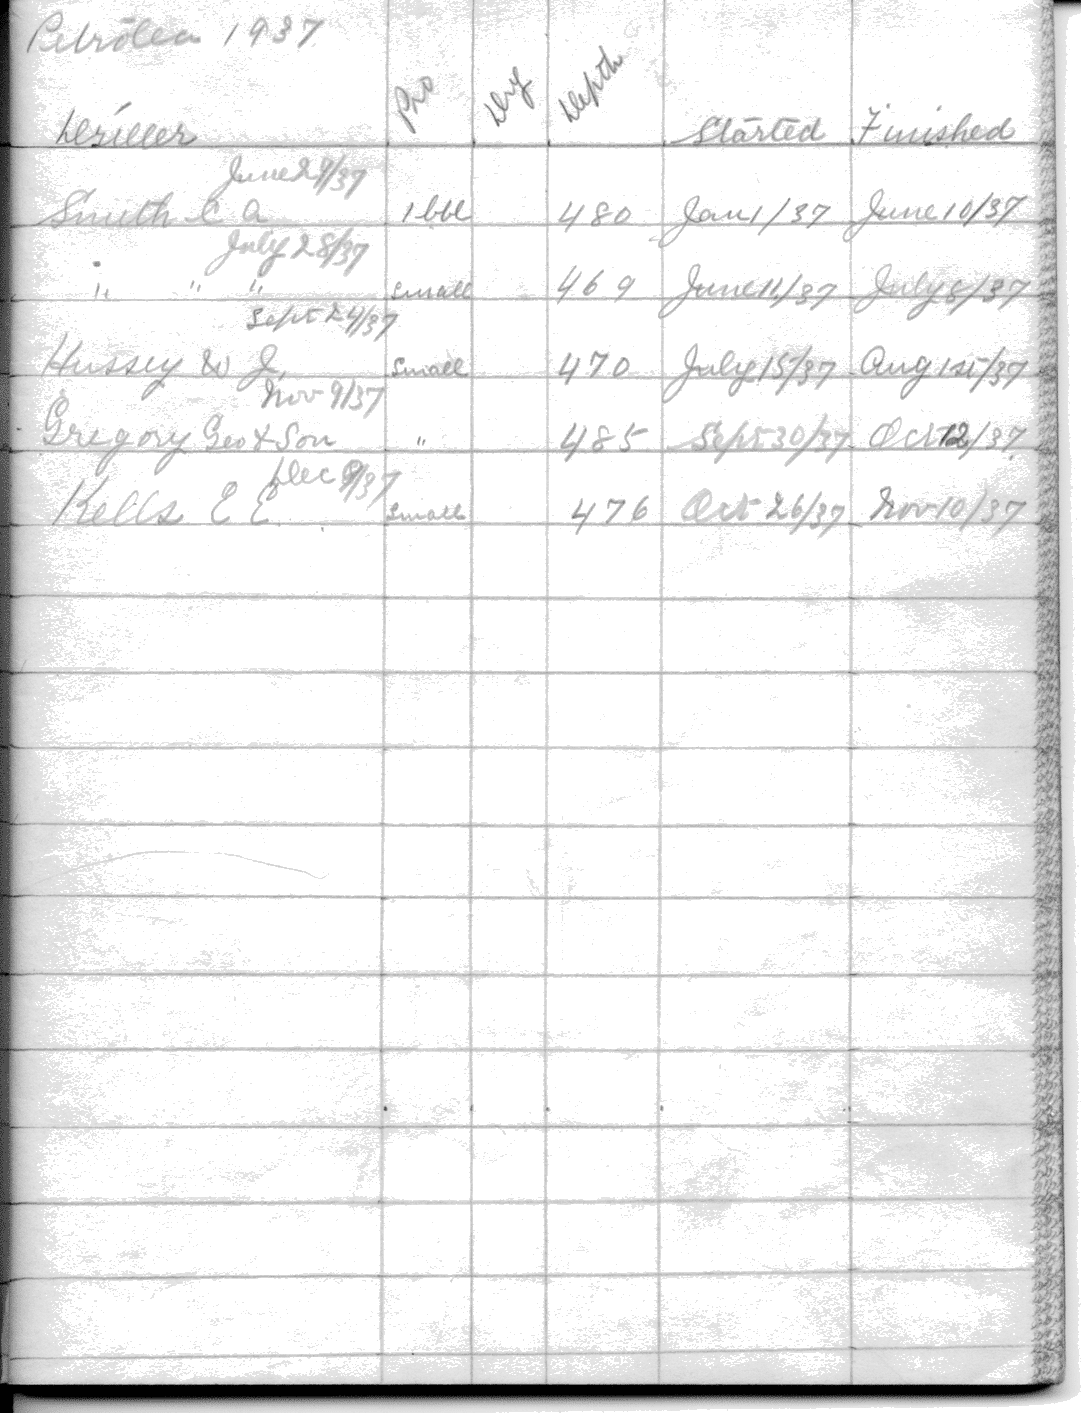 Petrolea 1937
Driller Pro Dry Depth Started Finished
June 29/37
Smith C A 1 bbl 480 Jan 1/37 June 10/37
July 28/37
" " " small 469 June 11/37 July 8/37
Sept 24/37
Hussey W J. Small 470 July 15/37 Aug 1st/37
Nov 9/37
Gregory Geo & Son " 485 Sept 30/37 Oct 12/37
Dec 8/37
Kells E E small 476 Oct 26/37 Nov 10/37